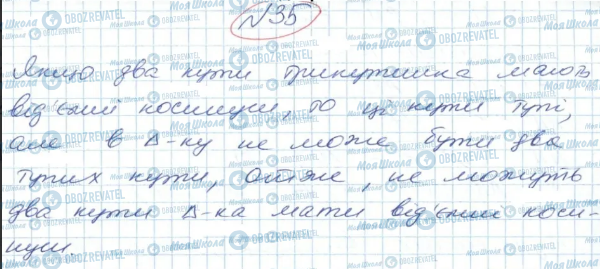 №35
Якщо два кути трикутника мають
від'ємні косинуси, то ці кути тупі,
але в Δ-ку не може бути два
тупих кути, отже, не можуть
два кути Δ-ка мати від'ємні коси-
нуси.